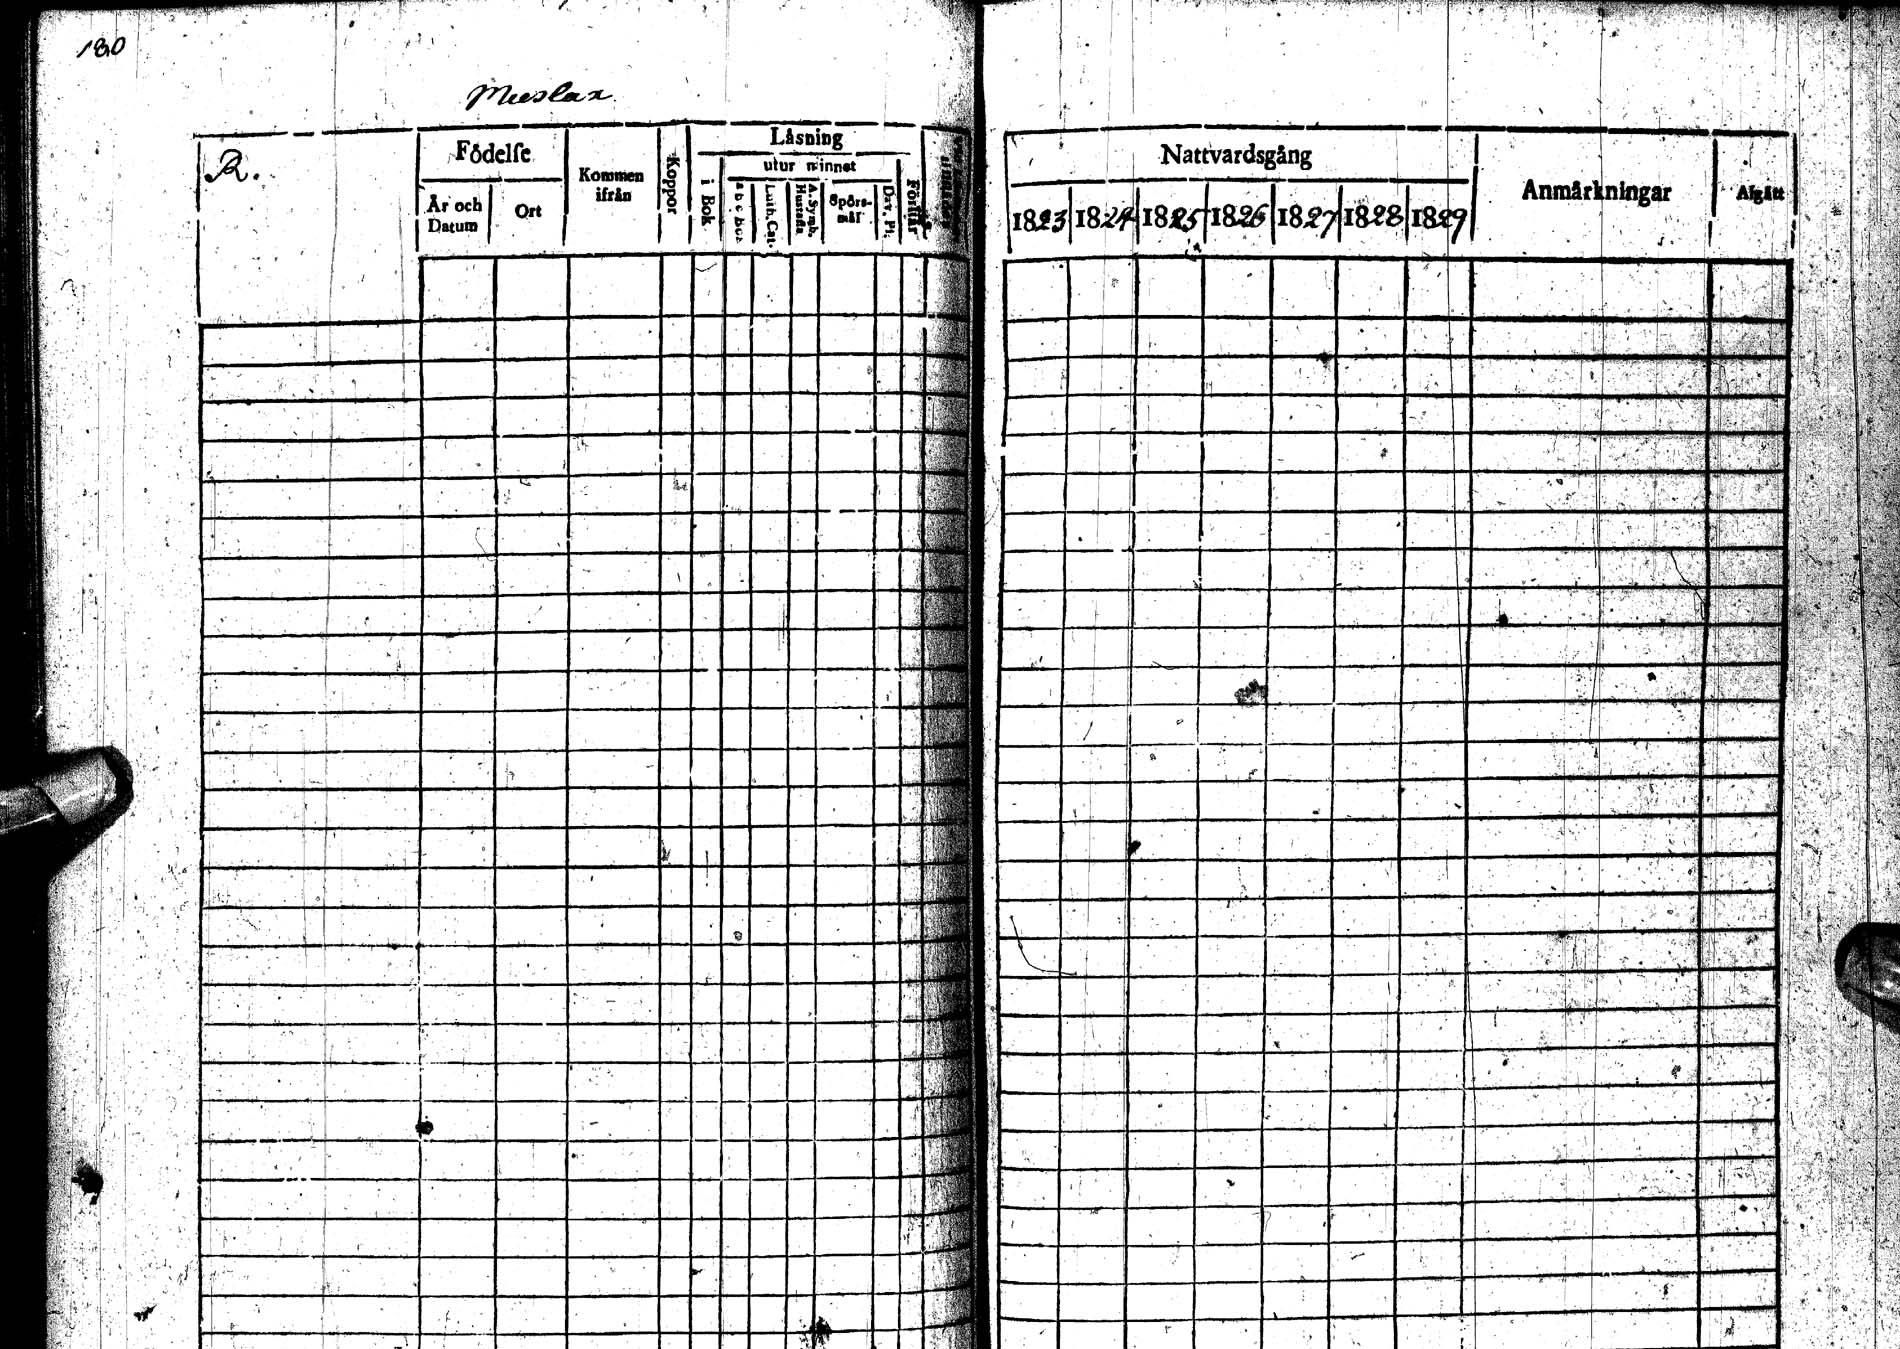 180
Muslax
R.
Födelse
År och Datum
Ort
Kommen ifrån
Koppor
Läsning
i Bok
utur minnet
a b c bok
Luth. Cat.
A. Symb.
Hustafla
Spörsmål
Dav. Ps.
Förstår
Nattvardsgång
1823 1824 1825 1826 1827 1828 1829
Anmärkningar
Afgått